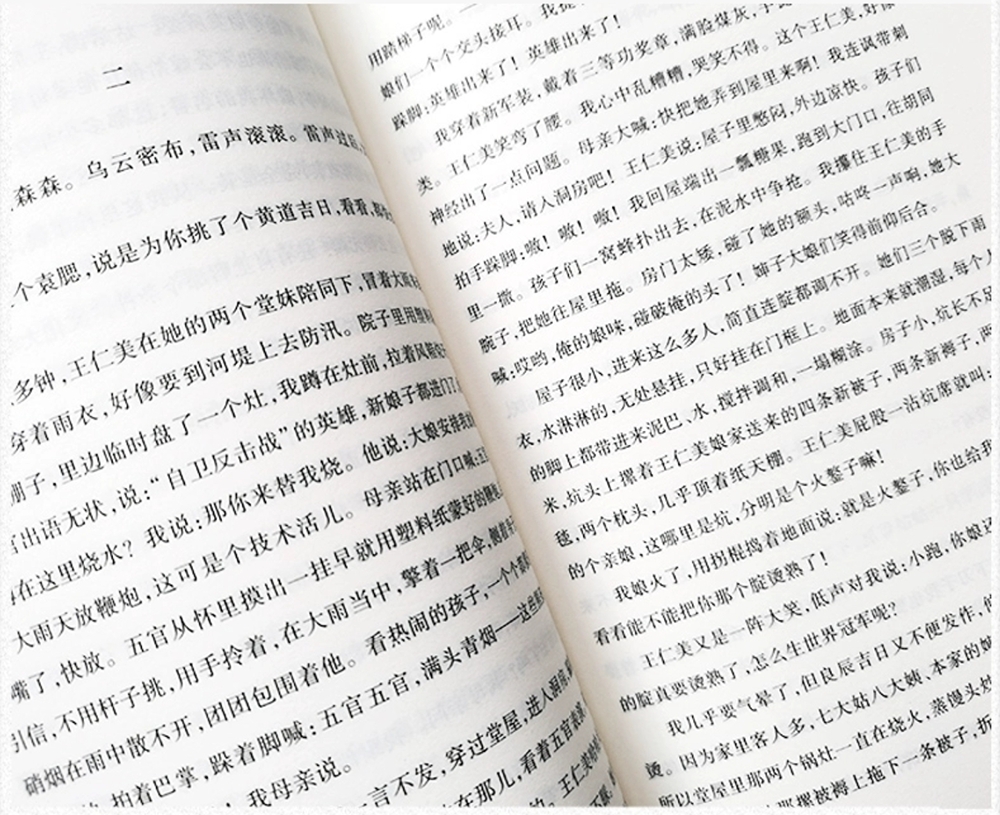 二
森森。乌云密布,雷声滚滚。雷声过后,
个袁腮,说是为你挑了个黄道吉日,看看,那
多钟,王仁美在她的两个堂妹陪同下,冒着大雨
穿着雨衣,好像要到河堤上去防汛。院子里用塑料
棚子,里边临时盘了一个灶,我蹲在灶前,拉着风箱
官出语无状,说:“自卫反击战”的英雄,新娘子都进门了
在这里烧水?我说:那你来替我烧。他说:大娘安排我
大雨天放鞭炮,这可是个技术活儿。母亲站在门口喊:王
嘴了,快放。五官从怀里摸出一挂早就用塑料纸蒙好的鞭炮
引信,不用杆子挑,用手拎着,在大雨当中,擎着一把伞,侧着
硝烟在雨中散不开,团团包围着他。看热闹的孩子,一个个
拍着巴掌,跺着脚喊:五官五官,满头青烟——这些
我母亲说。
言不发,穿过堂屋,进入洞房
在那儿,看着五官
王仁美
用踏梯子呢。
娘们一个个交头接耳。我提
跺脚:英雄出来了!英雄出来了!
我穿着新军装,戴着三等功奖章,满脸煤灰,手
类。王仁美笑弯了腰。我心中乱糟糟,哭笑不得。这个王仁美,好像
神经出了一点问题。母亲大喊:快把她弄到屋里来啊!我连讽带刺
地说:夫人,请入洞房吧!王仁美说:屋子里憋闷,外边凉快。孩子们
拍手跺脚:嗷!嗷!嗷!我回屋端出一瓢糖果,跑到大门口,往胡同
里一撒。孩子们一窝蜂扑出去,在泥水中争抢。我攥住王仁美的手
腕子,把她往屋里拖。房门太矮,碰了她的额头,咕咚一声响,她大
喊:哎哟,俺的娘咪,碰破俺的头了!婶子大娘们笑得前仰后合。
屋子很小,进来这么多人,简直连腚都调不开。她们三个脱下雨
衣,水淋淋的,无处悬挂,只好挂在门框上。地面本来就潮湿,每个人
的脚上都带进来泥巴、水,搅拌调和,一塌糊涂。房子小,炕长不足
米,炕头上摞着王仁美娘家送来的四条新被子,两条新褥子,两
毯,两个枕头,几乎顶着纸天棚。王仁美屁股一沾炕席就叫:
的个亲娘,这哪里是炕,分明是个火鏊子嘛!
我娘火了,用拐棍捣着地面说:就是火鏊子,你也给我
看看能不能把你那个腚烫熟了!
王仁美又是一阵大笑,低声对我说:小跑,你娘还
的腚真要烫熟了,怎么生世界冠军呢?
我几乎要气晕了,但良辰吉日又不便发作,
烫。因为家里客人多,七大姑八大姨、本家的
所以堂屋里那两个锅灶一直在烧火,蒸馒头炒
那摞被褥上拖下一条被子,折